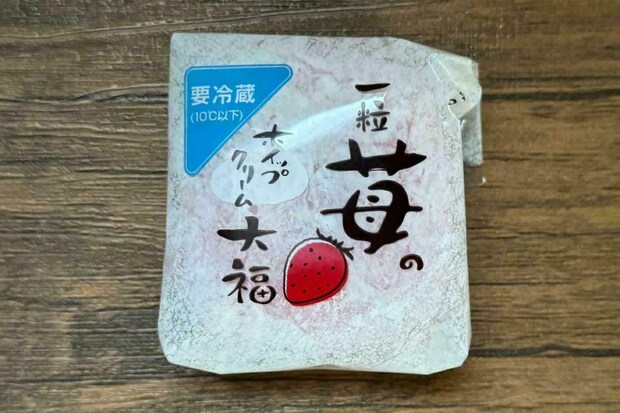 要冷蔵
(10℃以下)
一粒
苺の
ホイップ
クリーム
大福